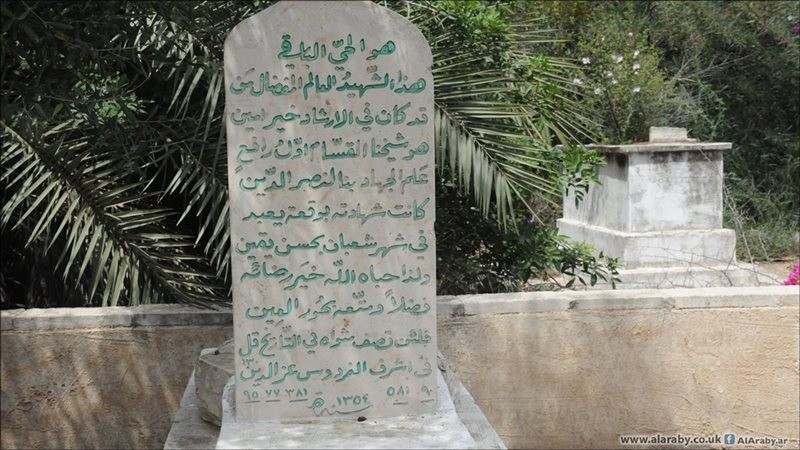 هو الحيّ الباقي
هذا الشّهيدُ العالم المفضال مَن
قد كان في الارشاد خير امين
هو شيخنا القسّام اوّل رافعٍ
علم الجهاد بنا لنصر الدّين
كانت شهادته بوقعة يعبد
في شهر شعبان بحسن يقين
ولذا حباه الله خير رضائه
فضلاً ومتّعه بحُور العين
فلئن تصف مثواه في التّاريخ قل
في اشرف الفردوس عزّ الدين
٩٠ ٥٨١ ٣٨١ ٧٧ ٩٥
سنة ١٣٥٤ هـ
www.alaraby.co.uk AlAraby.ar